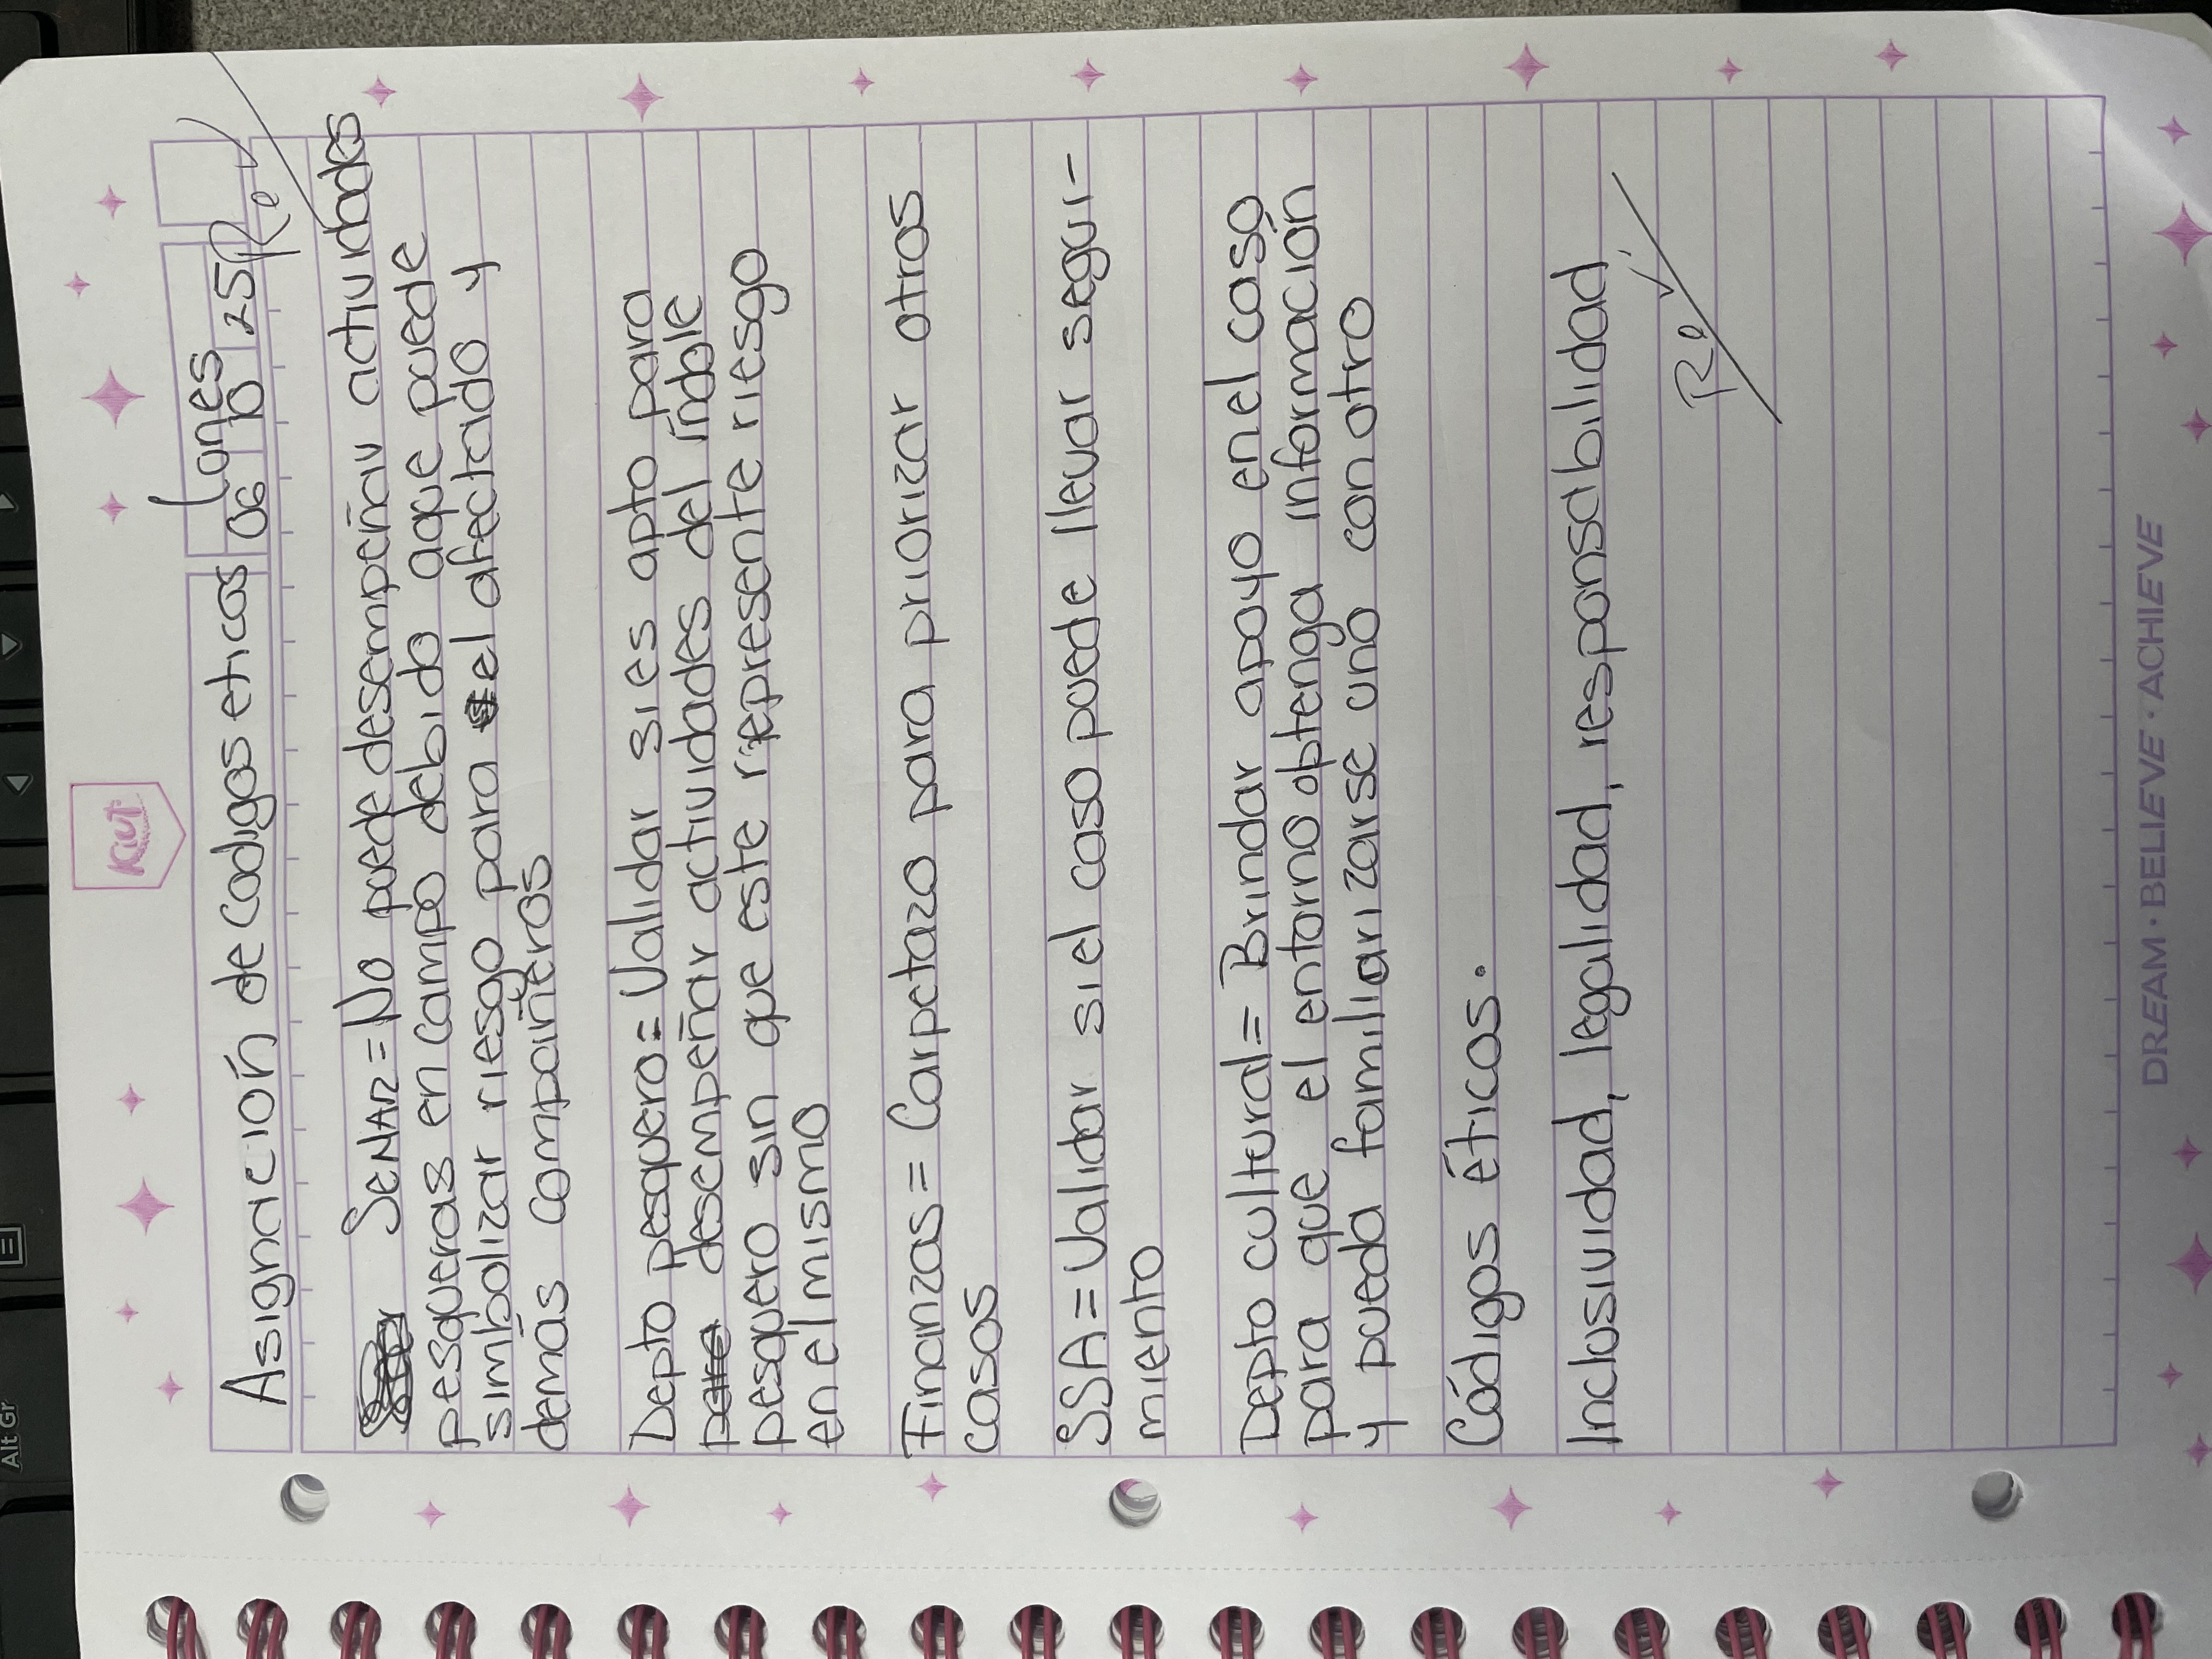 Kiut
Lunes
Asignación de Codigos eticos 06 10 25 Rev
SENAR = No puede desempeñar actividades
pesqueras en campo debido aque puede
simbolizar riesgo para el afectado y
demás compañeros
Depto pesquero = Validar si es apto para
para desempeñar actividades del índole
pesquero sin que este represente riesgo
en el mismo
Finanzas = Carpetazo para priorizar otros
casos
SSA = Validar si el caso puede llevar segui-
miento
Depto cultural = Brindar apoyo en el caso
para que el entorno obtenga información
y pueda familiarizarse uno con otro
Códigos éticos.
Inclusividad, legalidad, responsabilidad
Rev.
DREAM · BELIEVE · ACHIEVE
Alt Gr